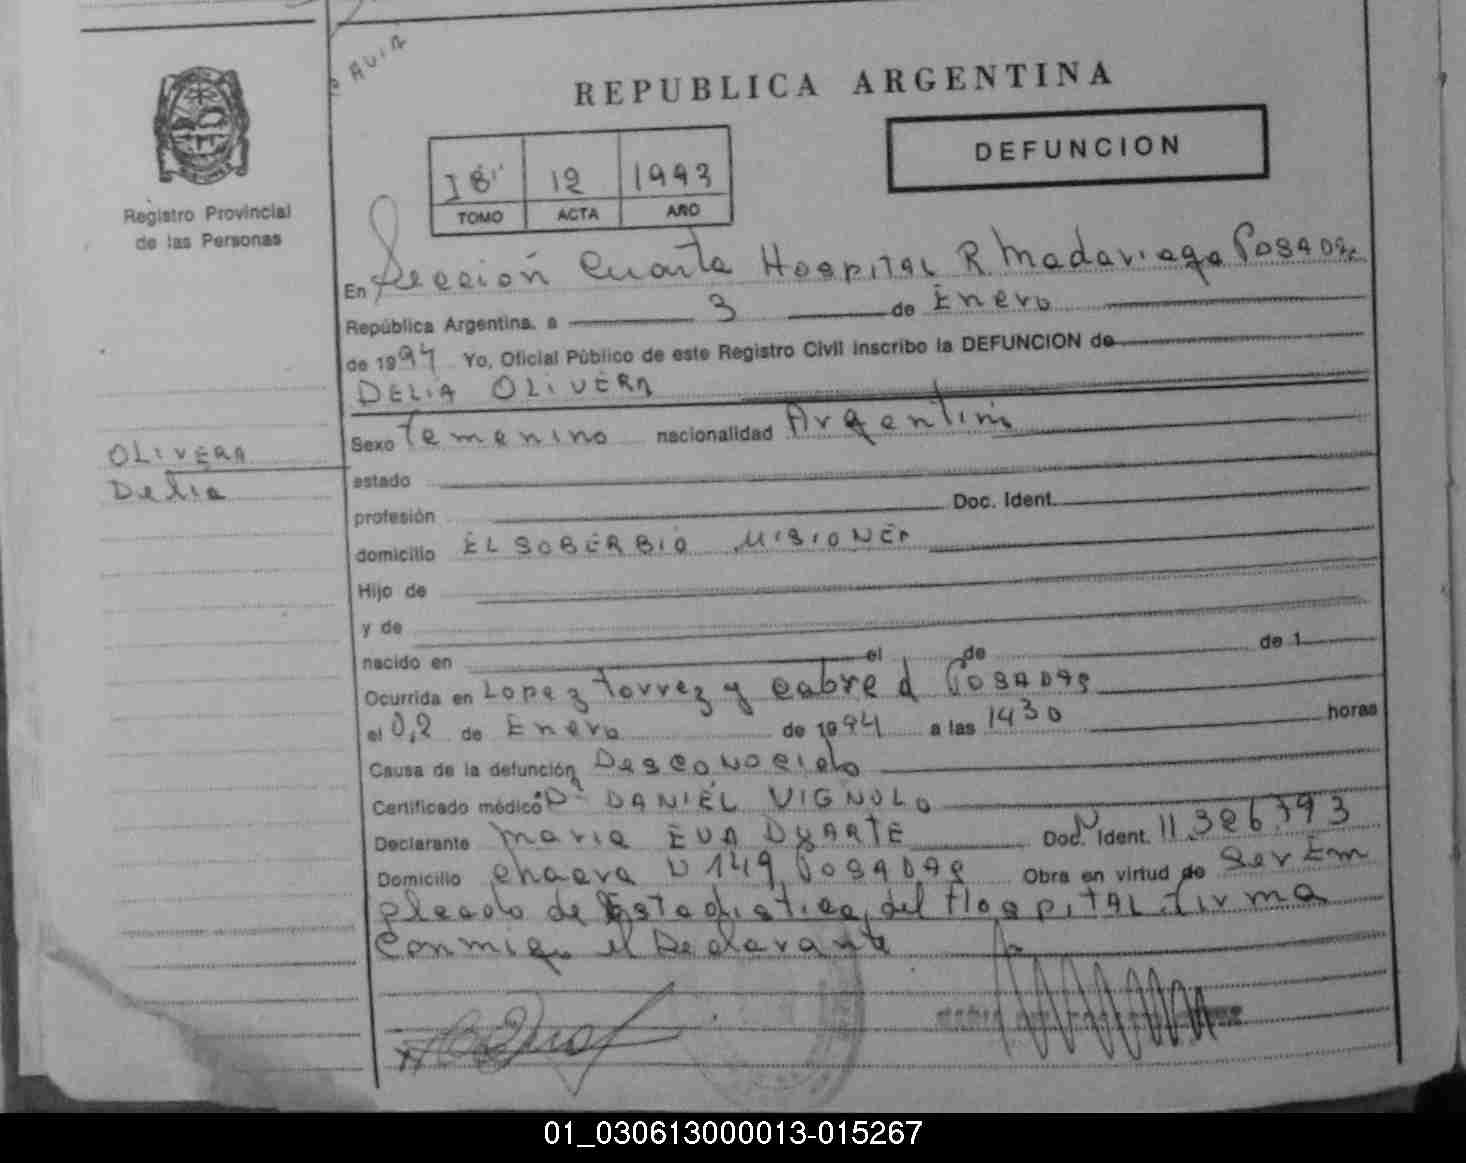 REPUBLICA ARGENTINA
DEFUNCION
Registro Provincial
de las Personas
I 8" 12 1993
TOMO ACTA AÑO
En Sección Cuarta Hospital R Madariaga Posadas
República Argentina, a 3 de Enero
de 1994 Yo, Oficial Público de este Registro Civil inscribo la DEFUNCION de
DELIA OLIVERA
OLIVERA
Delia
Sexo Femenino nacionalidad Argentina
estado
profesión Doc. Ident.
domicilio EL SOBERBIO MISIONES
Hijo de
y de
nacido en el de de 1
Ocurrida en Lopez Torrez y Cabred Posadas
el 02 de Enero de 1994 a las 1430 horas
Causa de la defunción Desconocido
Certificado médico Dr DANIEL VIGNOLO
Declarante Maria EVA DUARTE Doc. Ident. 11.326.793
Domicilio Chacra N 149 Posadas Obra en virtud de Ser Em
pleado de Estadistica, del Hospital. Firma
Conmigo el Declarante
01_030613000013-015267